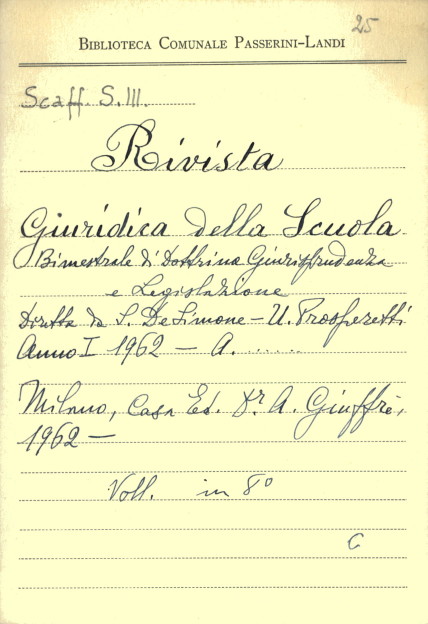 25
BIBLIOTECA COMUNALE PASSERINI-LANDI
Scaff. S. III.
Rivista
Giuridica della Scuola
Bimestrale di Dottrina Giurisprudenza
e Legislazione
Diretta da S. De Simone - U. Prosperetti
Anno I 1962 - A. ......
Milano, Casa Ed. Dr. A. Giuffrè,
1962 -
Voll. in 8°
C